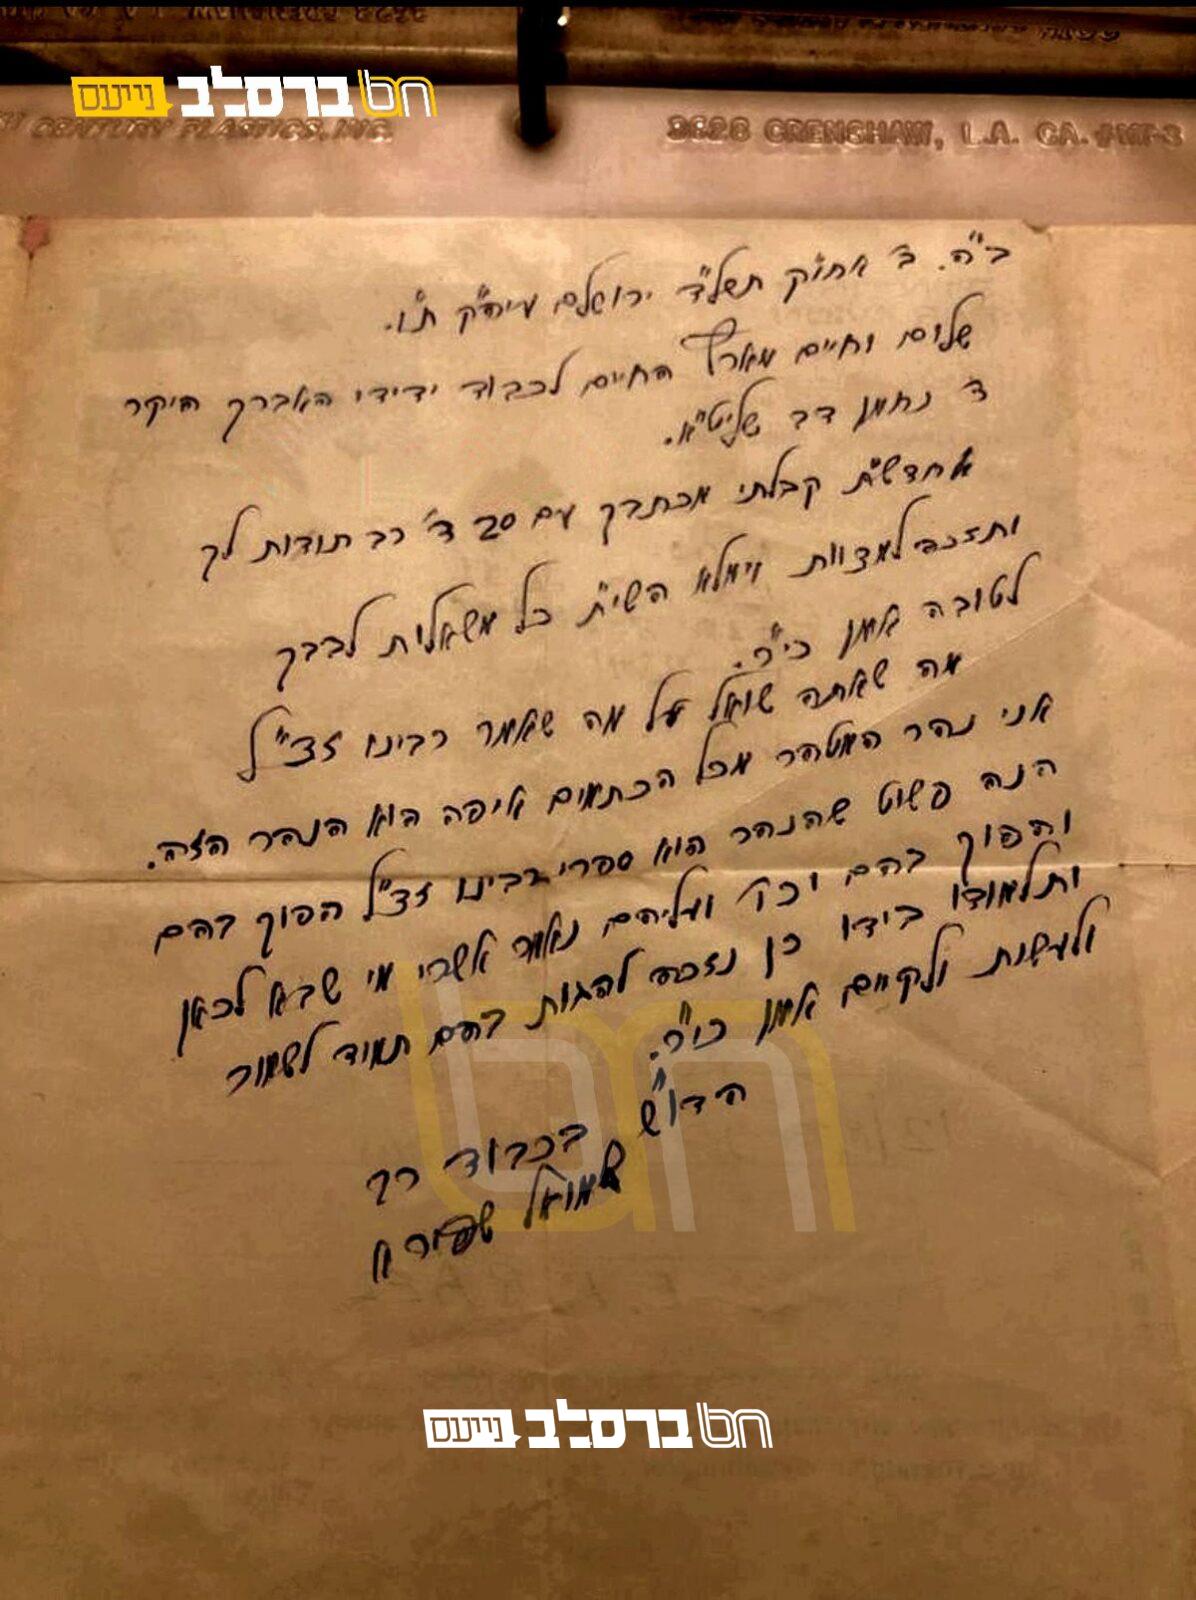 נייעס ברסלב
CENTURY PLASTICS, INC.
3628 CRENSHAW, L.A. CA. #MT-3
ב"ה. ב' אחו"ק תשל"ד ירושלם עיה"ק ת"ו.
שלום וחיים מארץ החיים לכבוד ידידי האברך היקר
ר' נחמן דב שליט"א.
אחדש"ת קבלתי מכתבך עם 20 ד' רב תודות לך
ותזכה למצוות וימלא השי"ת כל משאלות לבבך
לטובה אמן כי"ר.
מה שאתה שואל על מה שאמר רבינו זצ"ל
אני נהר המטהר מכל הכתמים איפה הוא הנהר הזה.
הנה פשוט שהנהר הוא ספרי רבינו זצ"ל הפוך בהם
והפוך בהם וכו' ועליהם נאמר אשרי מי שבא לכאן
ותלמודו בידו כן נזכה להגות בהם תמיד לשמור
ולעשות ולקיים אמן כי"ר.
הדו"ש בכבוד רב
שמואל שפירא
נייעס ברסלב